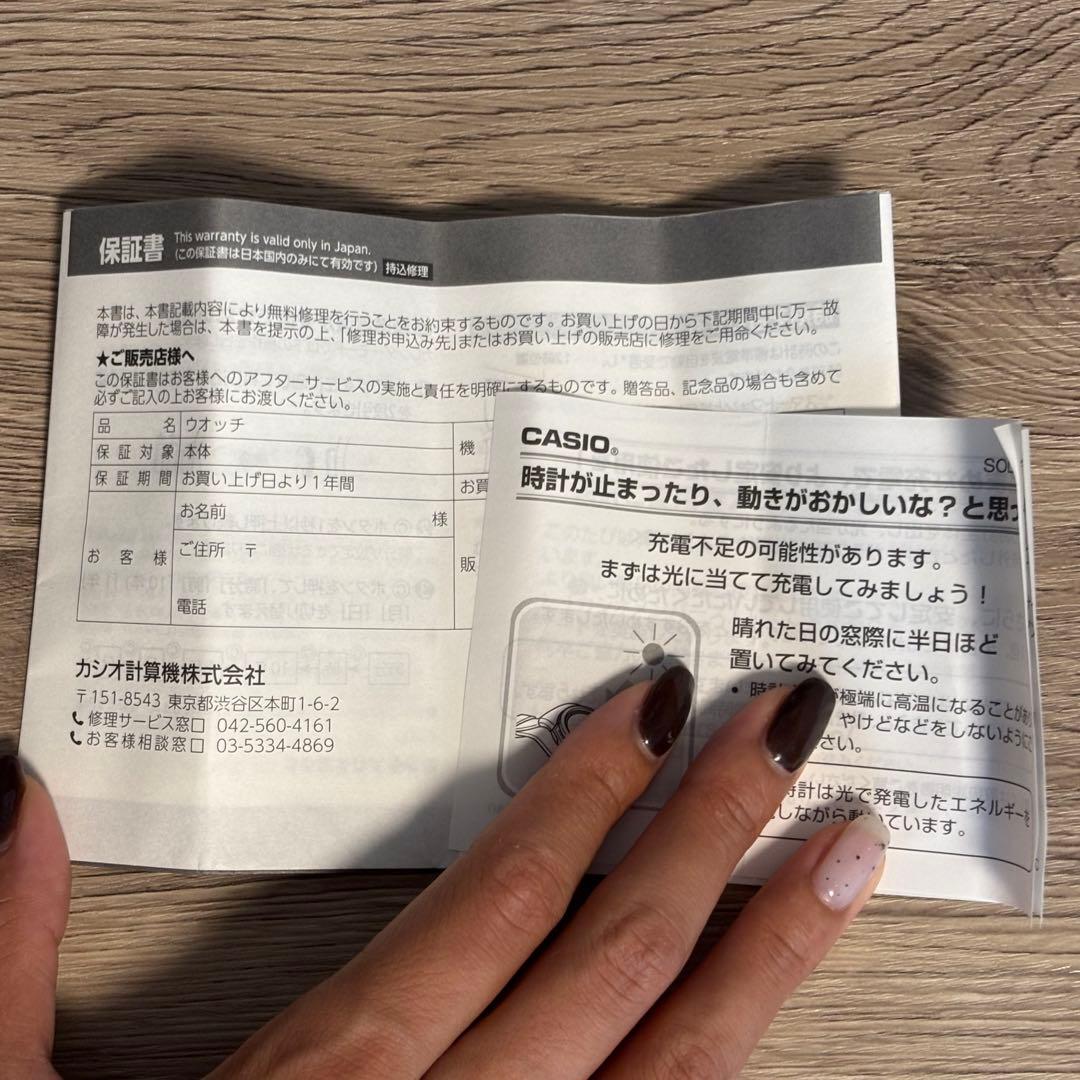 保証書 This warranty is valid only in Japan.
(この保証書は日本国内のみにて有効です) 持込修理
本書は、本書記載内容により無料修理を行うことをお約束するものです。お買い上げの日から下記期間中に万一故
障が発生した場合は、本書を提示の上、「修理お申込み先」またはお買い上げの販売店に修理をご用命ください。
★ご販売店様へ
この保証書はお客様へのアフターサービスの実施と責任を明確にするものです。贈答品、記念品の場合も含めて
必ずご記入の上お客様にお渡しください。
品名 ウオッチ 機
保証対象 本体
保証期間 お買い上げ日より1年間 お買
お客様 お名前 様
ご住所 〒 販
電話
カシオ計算機株式会社
〒151-8543 東京都渋谷区本町1-6-2
修理サービス窓口 042-560-4161
お客様相談窓口 03-5334-4869
CASIO®
時計が止まったり、動きがおかしいな?と思っ
充電不足の可能性があります。
まずは光に当てて充電してみましょう!
晴れた日の窓際に半日ほど
置いてみてください。
• 時 が極端に高温になることがあ
やけどなどをしないように
さい。
時計は光で発電したエネルギーを
しながら動いています。